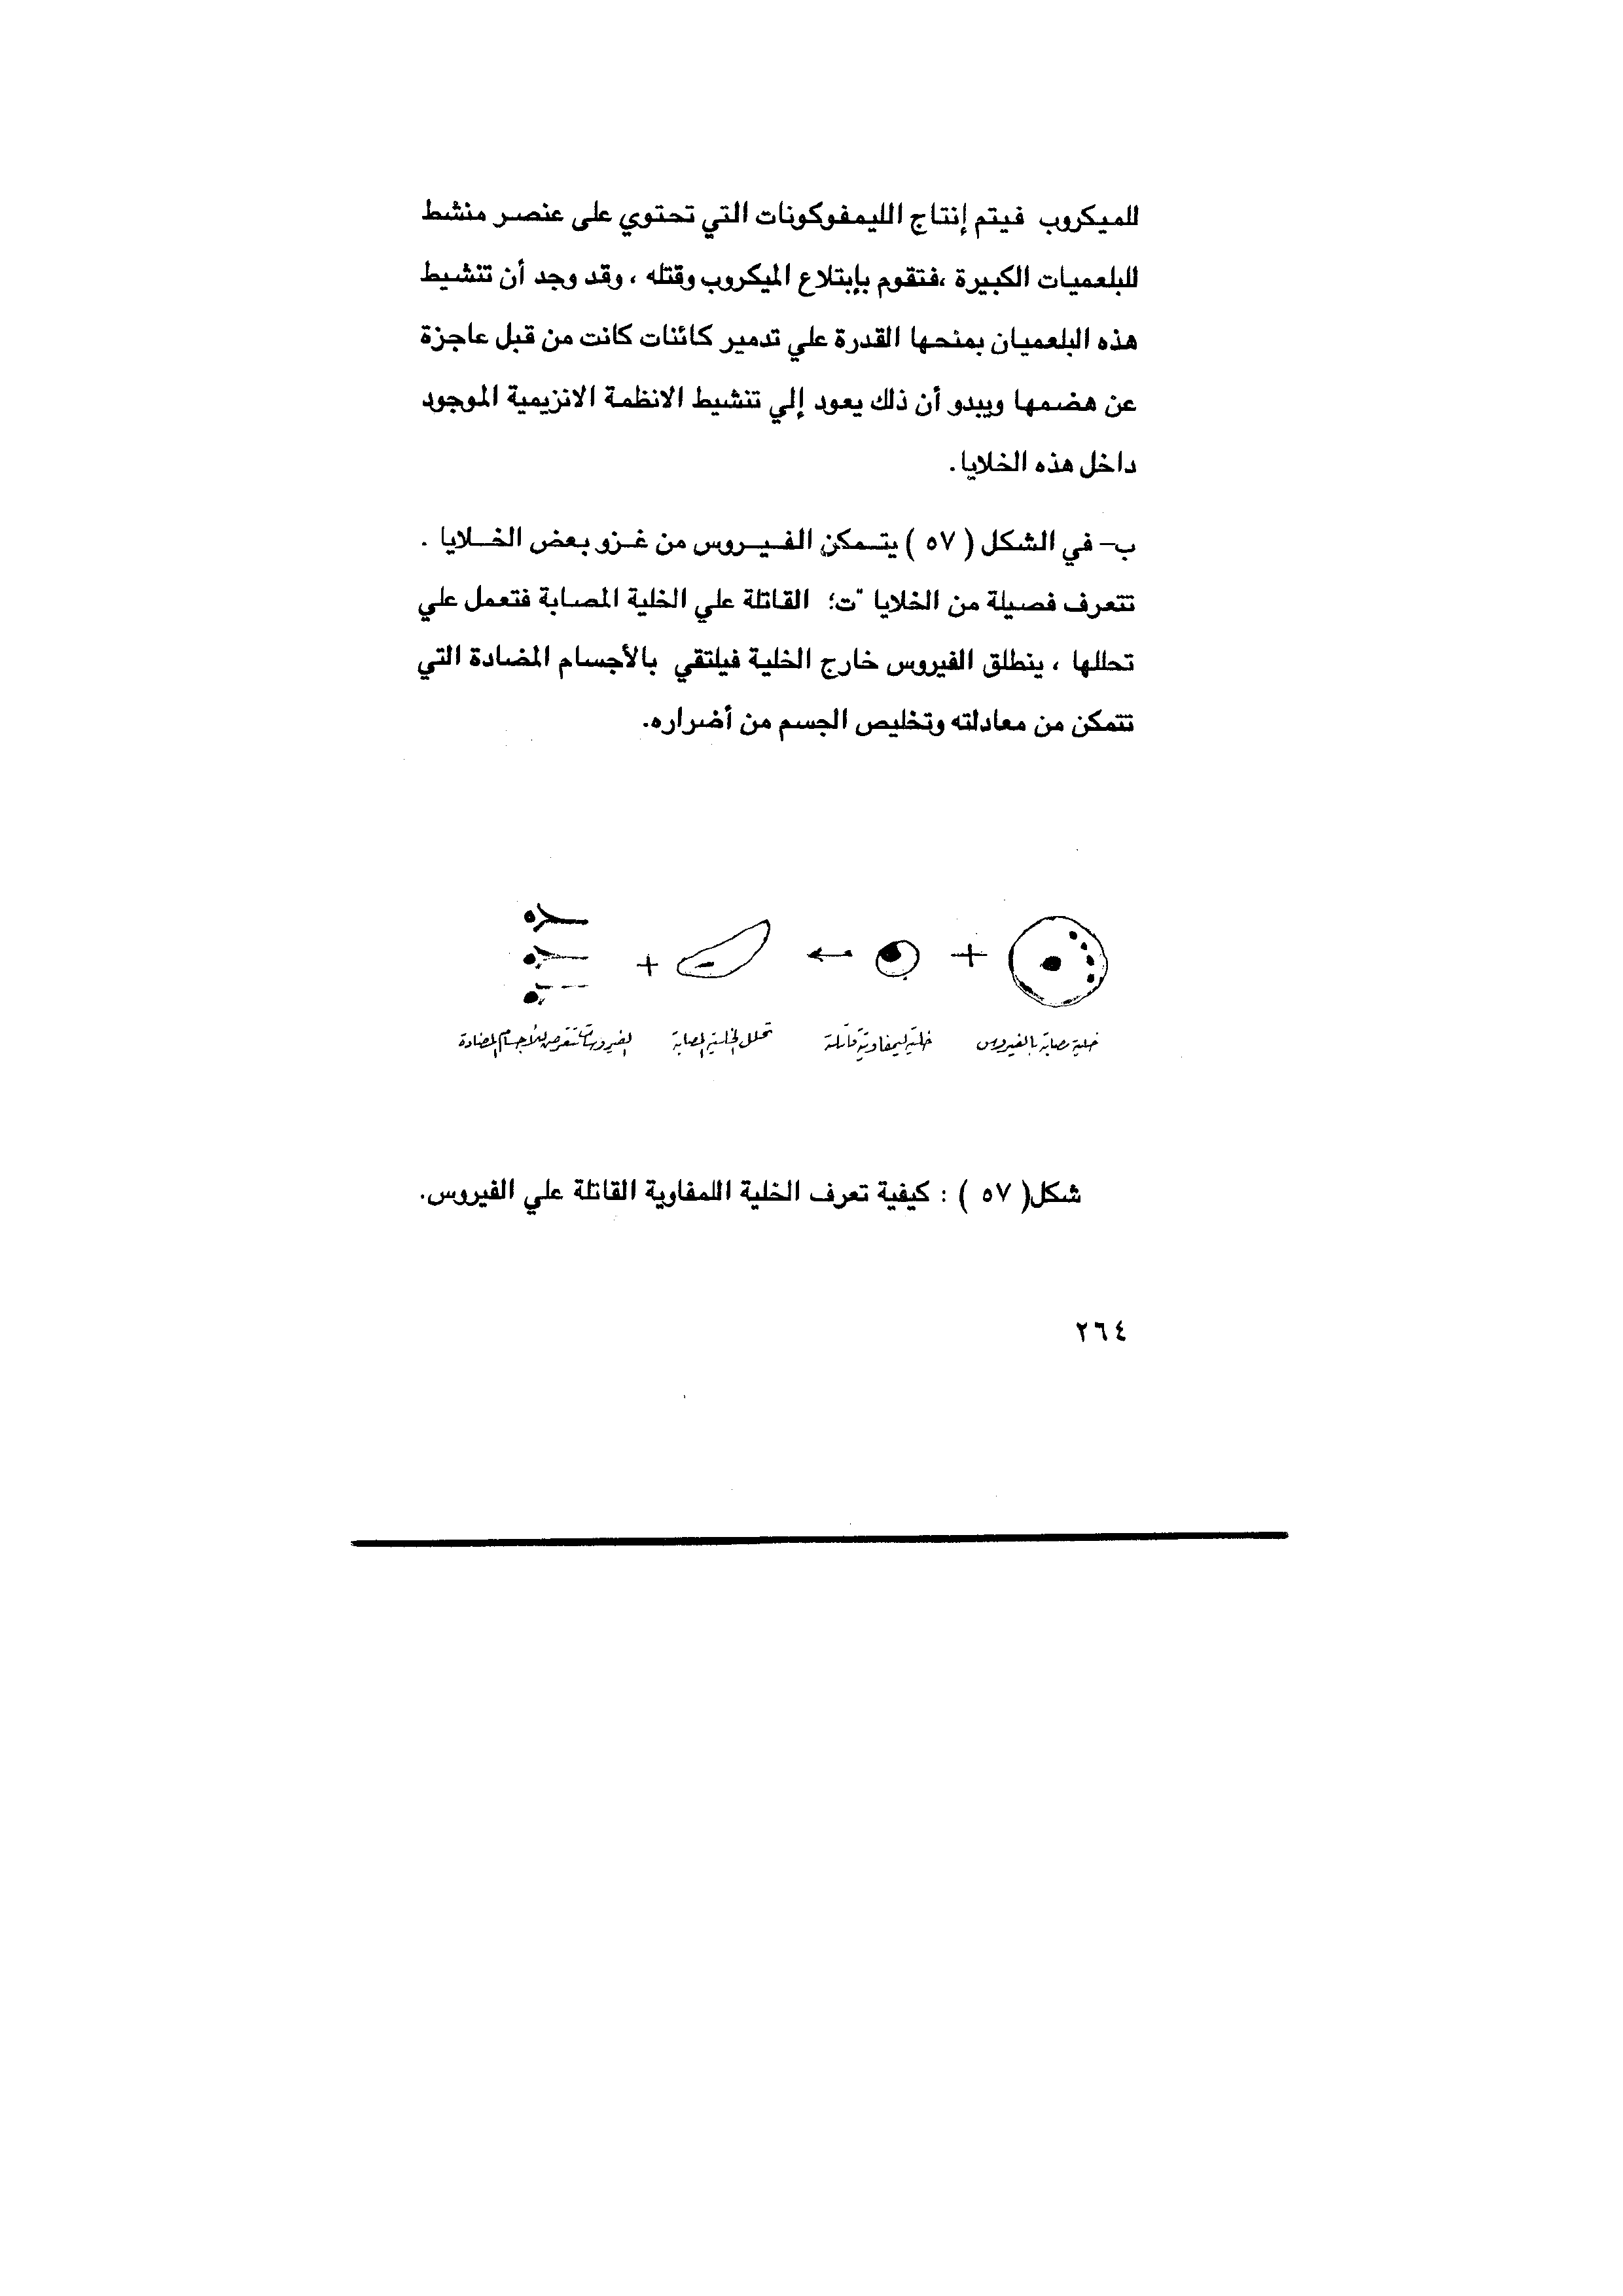 للميكروب فيتم إنتاج الليمفوكونات التي تحتوي على عنصر منشط
للبلعميات الكبيرة ،فتقوم بإبتلاع الميكروب وقتله ، وقد وجد أن تنشيط
هذه البلعميان بمنحها القدرة علي تدمير كائنات كانت من قبل عاجزة
عن هضمها ويبدو أن ذلك يعود إلي تنشيط الانظمة الانزيمية الموجود
داخل هذه الخلايا.
ب- في الشكل ( ٥٧ ) يتمكن الفيروس من غزو بعض الخلايا .
تتعرف فصيلة من الخلايا "ت؛ القاتلة علي الخلية المصابة فتعمل علي
تحللها ، ينطلق الفيروس خارج الخلية فيلتقي بالأجسام المضادة التي
تتمكن من معادلته وتخليص الجسم من أضراره.
خلية مصابة بالفيروس
خلية ليمفاوية قاتلة
تحلل الخلية المصابة
الفيروسات تتعرض للأجسام المضادة
شكل( ٥٧ ) : كيفية تعرف الخلية اللمفاوية القاتلة علي الفيروس.
٢٦٤